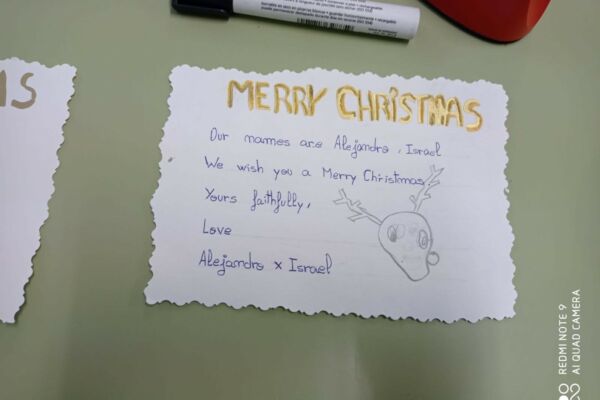 MERRY CHRISTMAS
Our names are Alejandro, Israel
We wish you a Merry Christmas
Yours faithfully,
Love
Alejandro x Israel
AS
REDMI NOTE 9
AI QUAD CAMERA